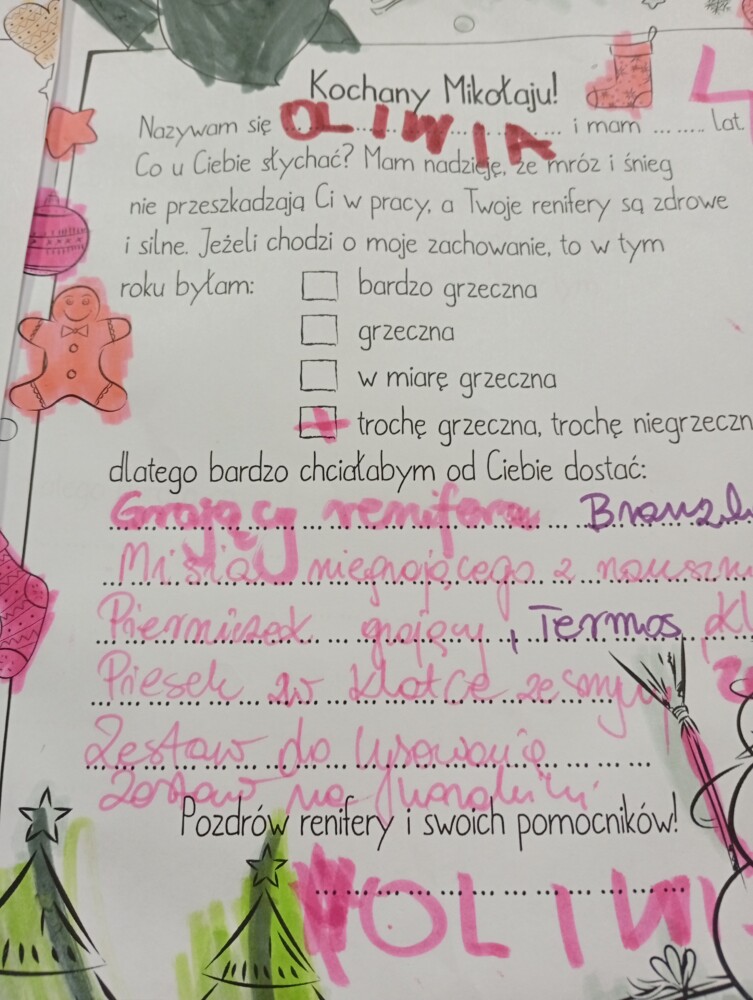 Kochany Mikołaju!
Nazywam się OLIWIA i mam ........ lat.
Co u Ciebie słychać? Mam nadzieję, że mróz i śnieg
nie przeszkadzają Ci w pracy, a Twoje renifery są zdrowe
i silne. Jeżeli chodzi o moje zachowanie, to w tym
roku byłam:
bardzo grzeczna
grzeczna
w miarę grzeczna
trochę grzeczna, trochę niegrzeczn
dlatego bardzo chciałabym od Ciebie dostać:
Grający renifera
Misia niegrającego z
Pierniczek grający, Termos,
Piesek w klatce ze
Zestaw do rysowania
Zestaw na
Pozdrów renifery i swoich pomocników!
OLIWI